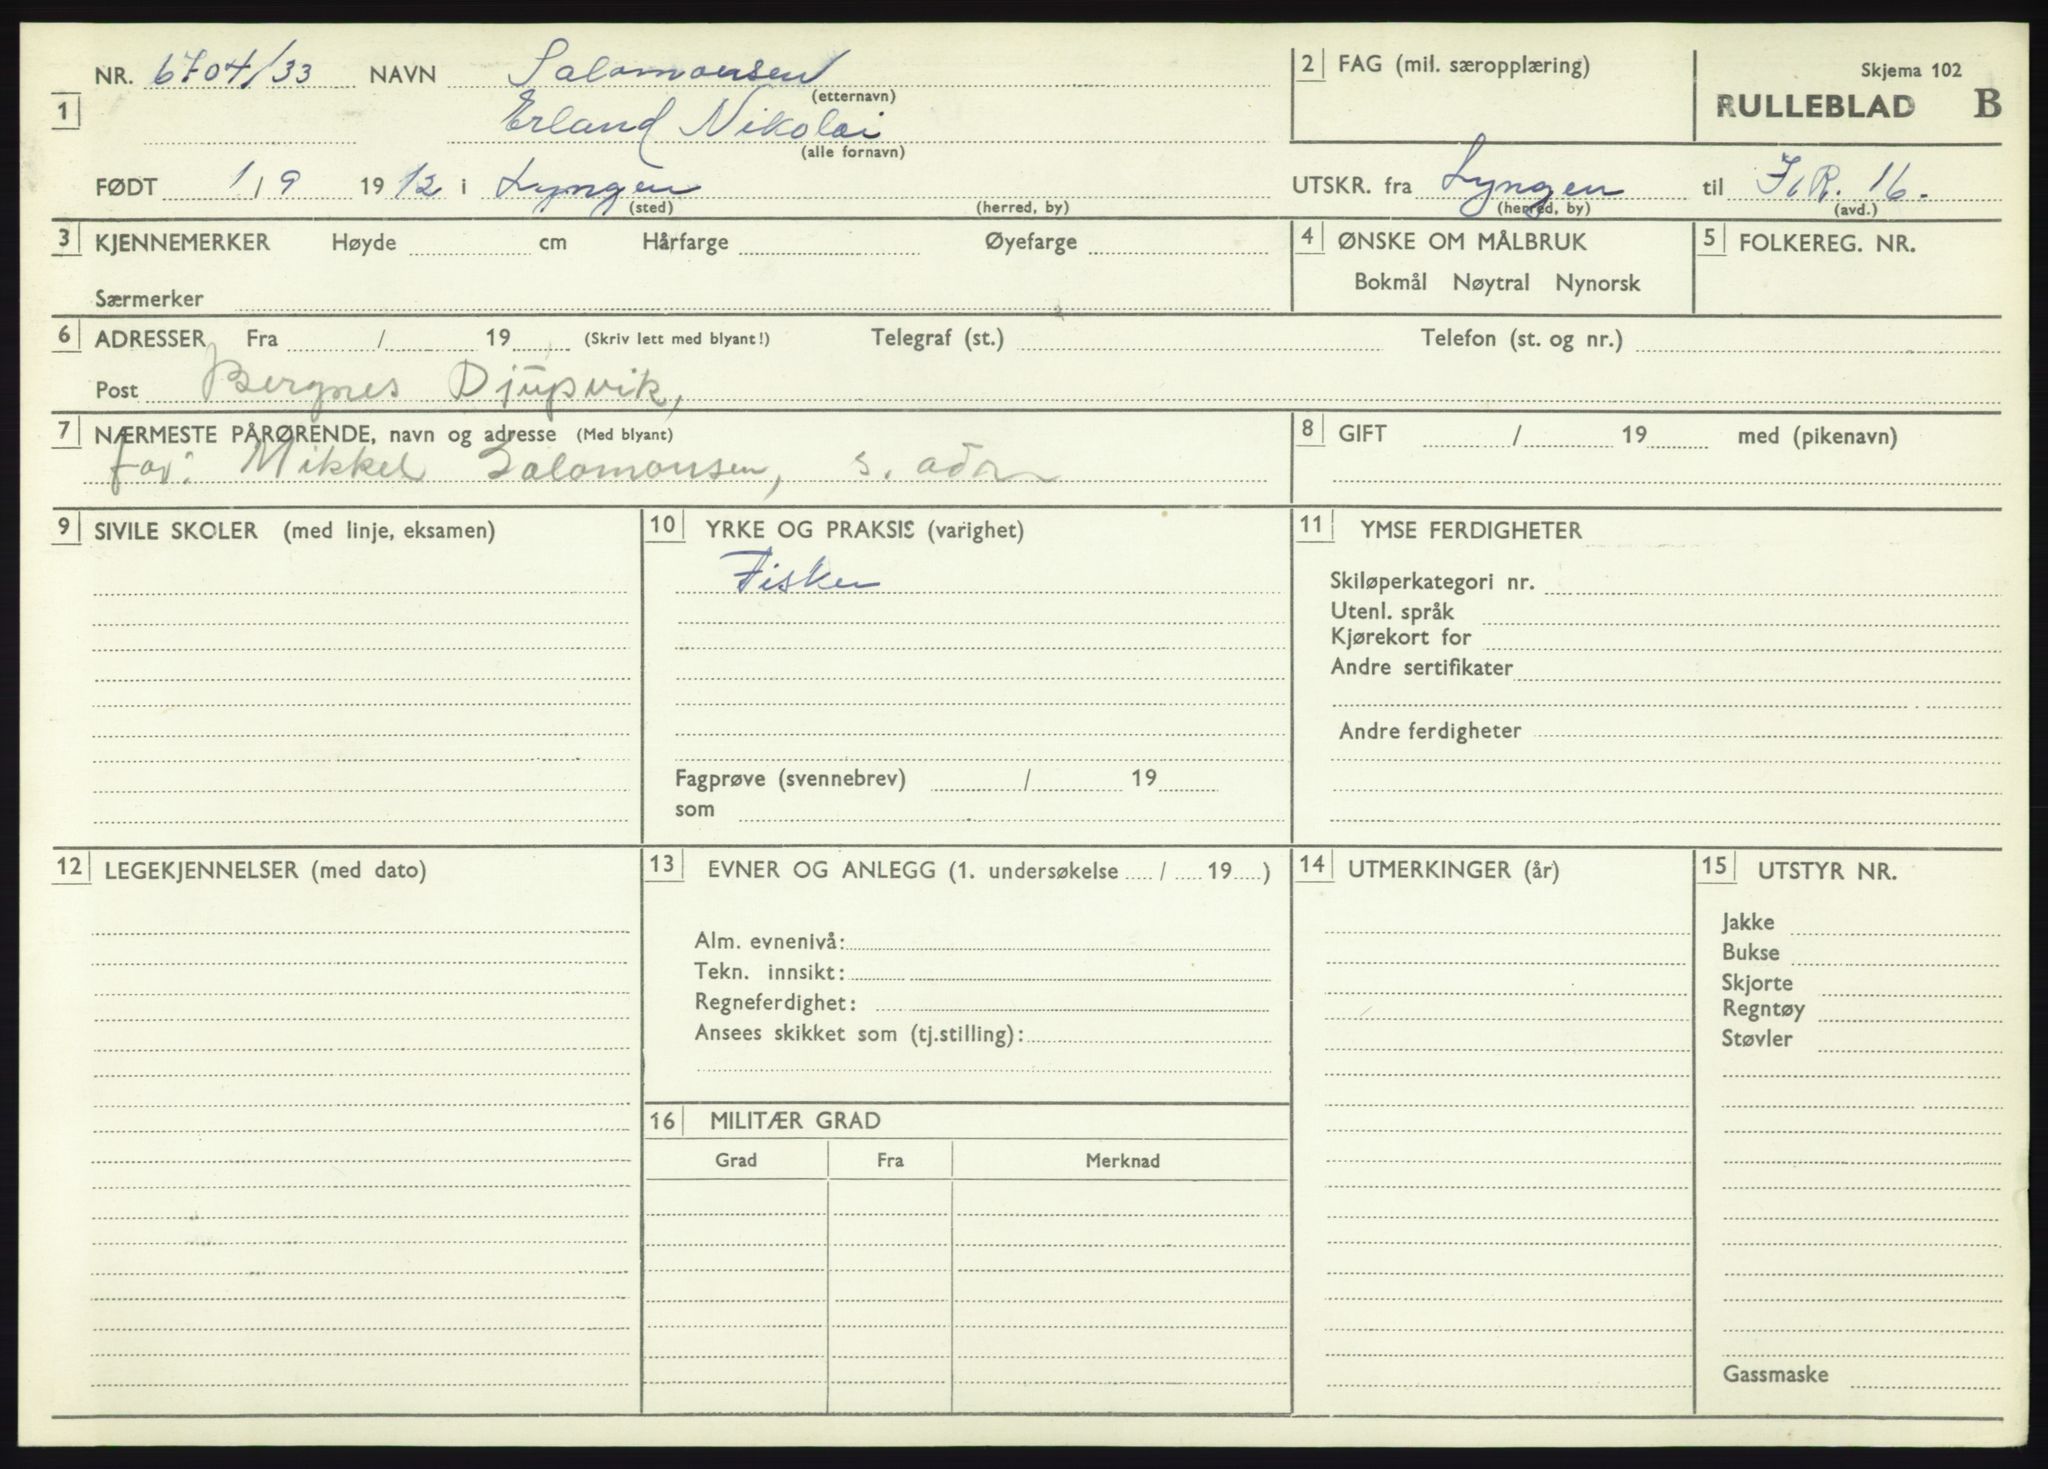 NR. 6704/33 NAVN Salomonsen
(etternavn)
2 FAG (mil. særopplæring)
Skjema 102
RULLEBLAD B
1
Erland Nikolai
(alle fornavn)
FØDT 1/9 1912 i Lyngen
(sted) (herred, by)
UTSKR. fra Lyngen til I.R. 16.
(herred, by) (avd.)
3 KJENNEMERKER Høyde cm Hårfarge Øyefarge
Særmerker
4 ØNSKE OM MÅLBRUK
Bokmål Nøytral Nynorsk
5 FOLKEREG. NR.
6 ADRESSER Fra / 19 (Skriv lett med blyant!) Telegraf (st.) Telefon (st. og nr.)
Post Bergnes Djupvik,
7 NÆRMESTE PÅRØRENDE, navn og adresse (Med blyant)
far: Mikkel Salomonsen, s. adr
8 GIFT / 19 med (pikenavn)
9 SIVILE SKOLER (med linje, eksamen)
10 YRKE OG PRAKSIS (varighet)
Fisker
Fagprøve (svennebrev) / 19
som
11 YMSE FERDIGHETER
Skiløperkategori nr.
Utenl. språk
Kjørekort for
Andre sertifikater
Andre ferdigheter
12 LEGEKJENNELSER (med dato)
13 EVNER OG ANLEGG (1. undersøkelse / 19 )
Alm. evnenivå:
Tekn. innsikt:
Regneferdighet:
Ansees skikket som (tj.stilling):
14 UTMERKINGER (år)
15 UTSTYR NR.
Jakke
Bukse
Skjorte
Regntøy
Støvler
Gassmaske
16 MILITÆR GRAD
Grad Fra Merknad